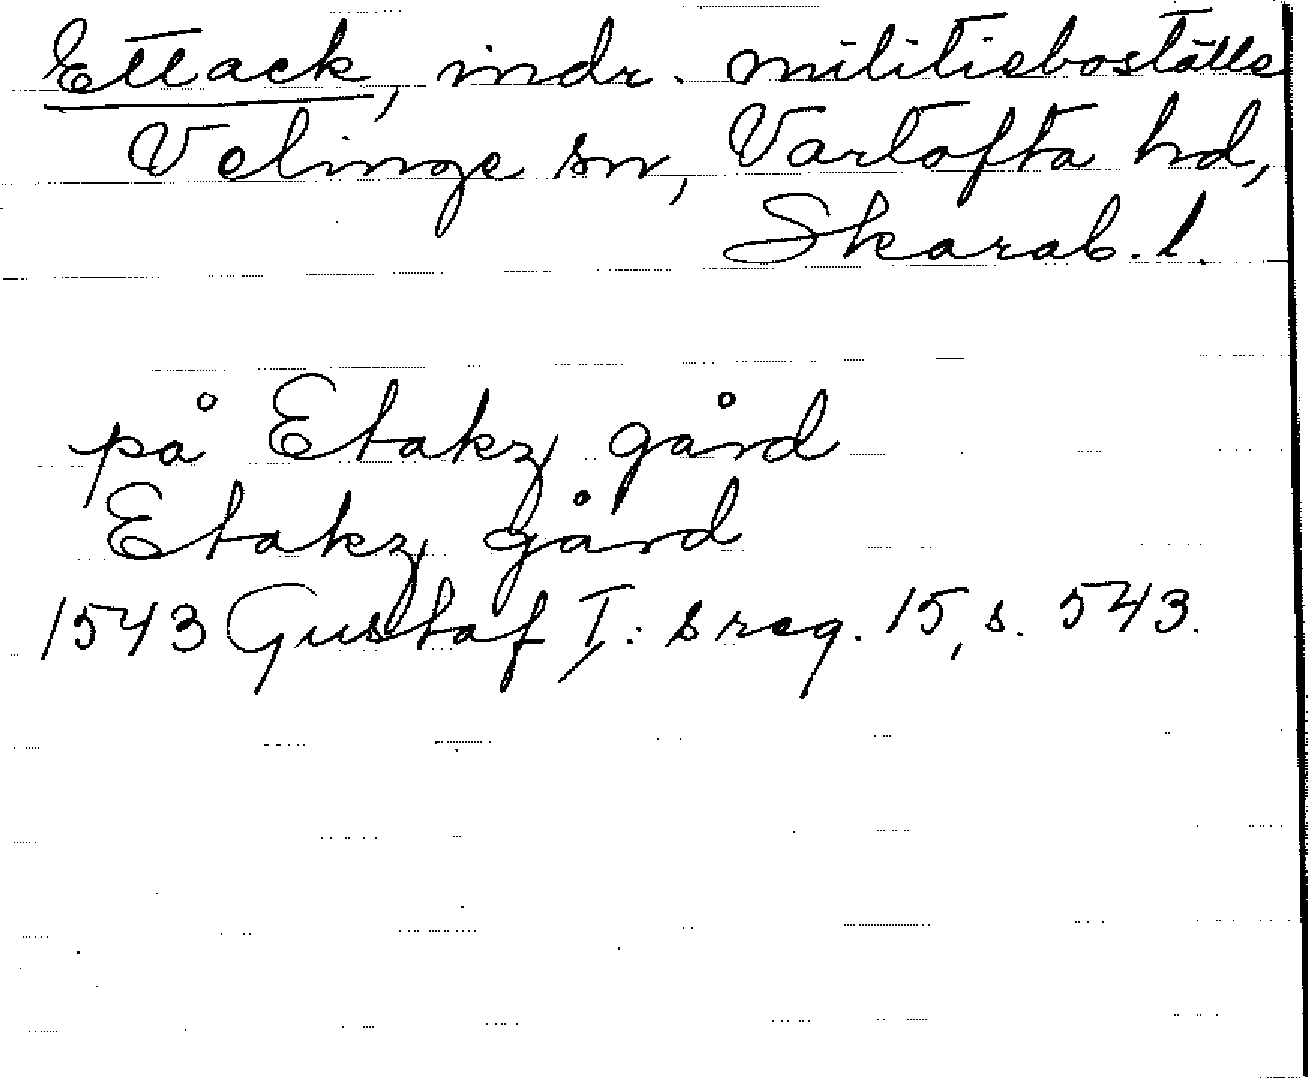 Ettack, indr. militieboställe
Velinge sn, Vartofta hd,
Skarab. l.
på Etakz gård
Etakz gård
1543 Gustaf I:s reg. 15, s. 543.